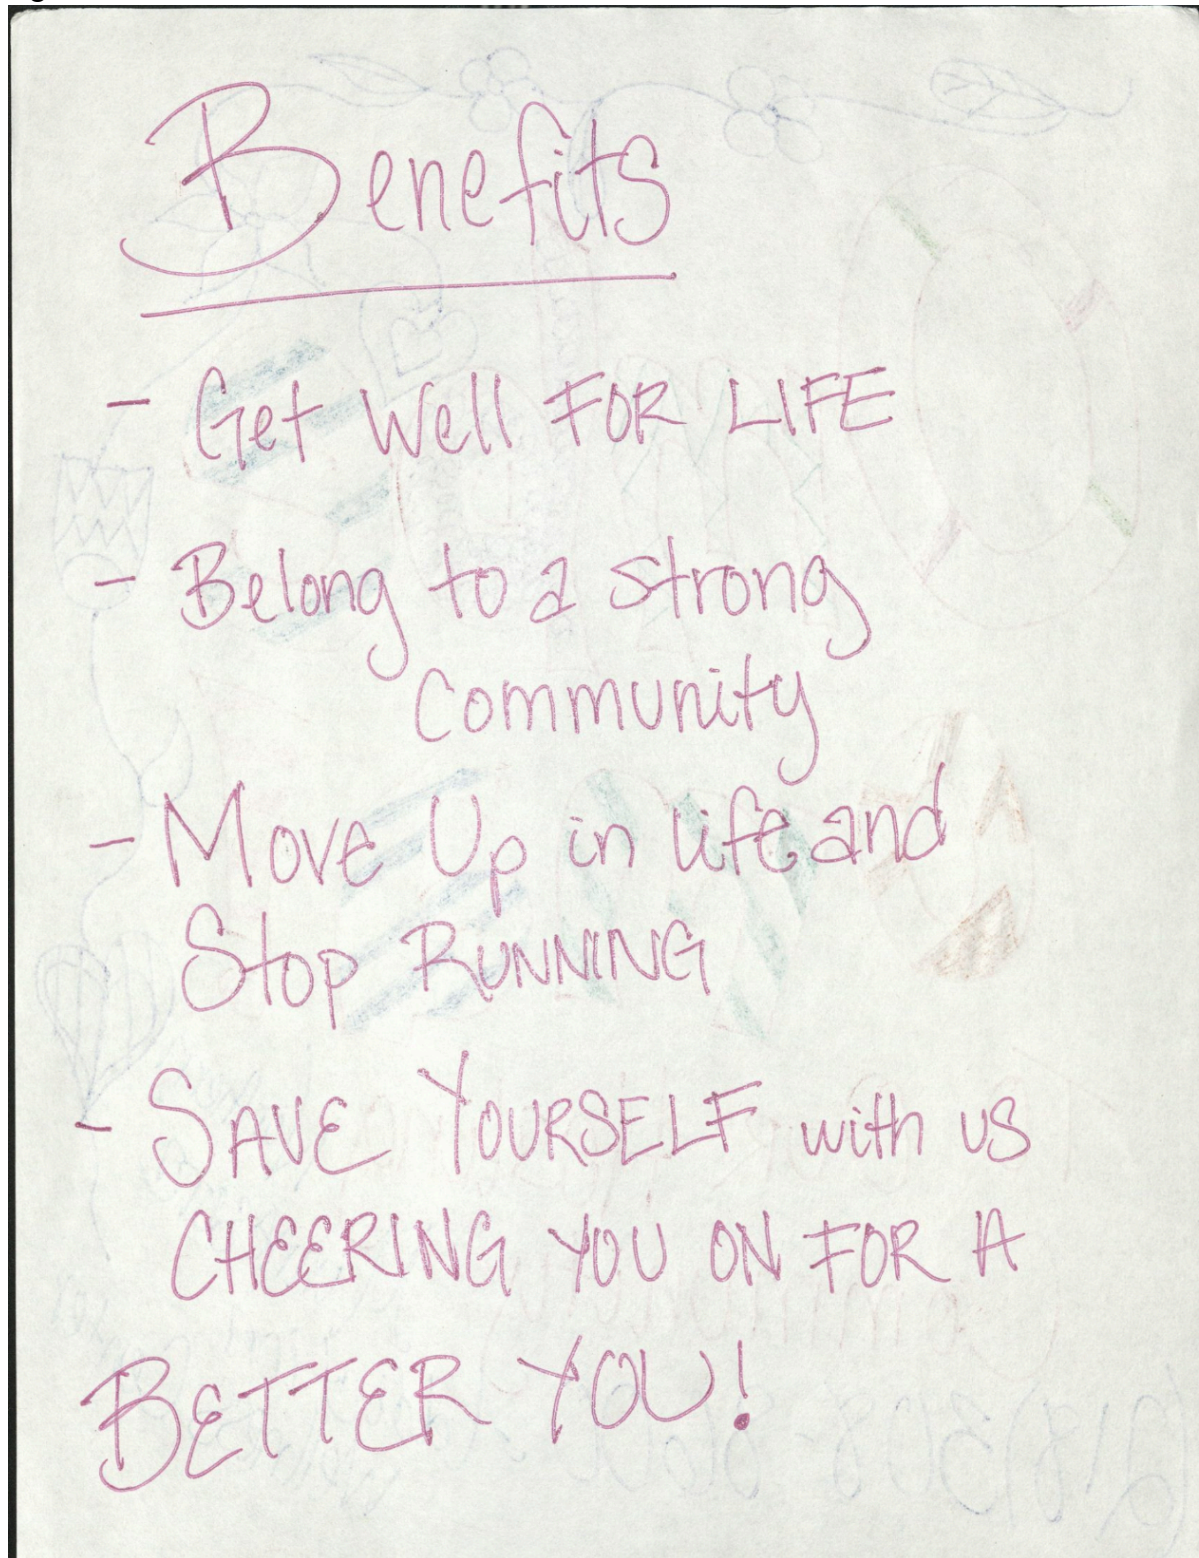 Benefits
- Get Well FOR LIFE
- Belong to a strong
community
- Move Up in life and
Stop RUNNING
- SAVE YOURSELF with us
CHEERING YOU ON FOR A
BETTER YOU!